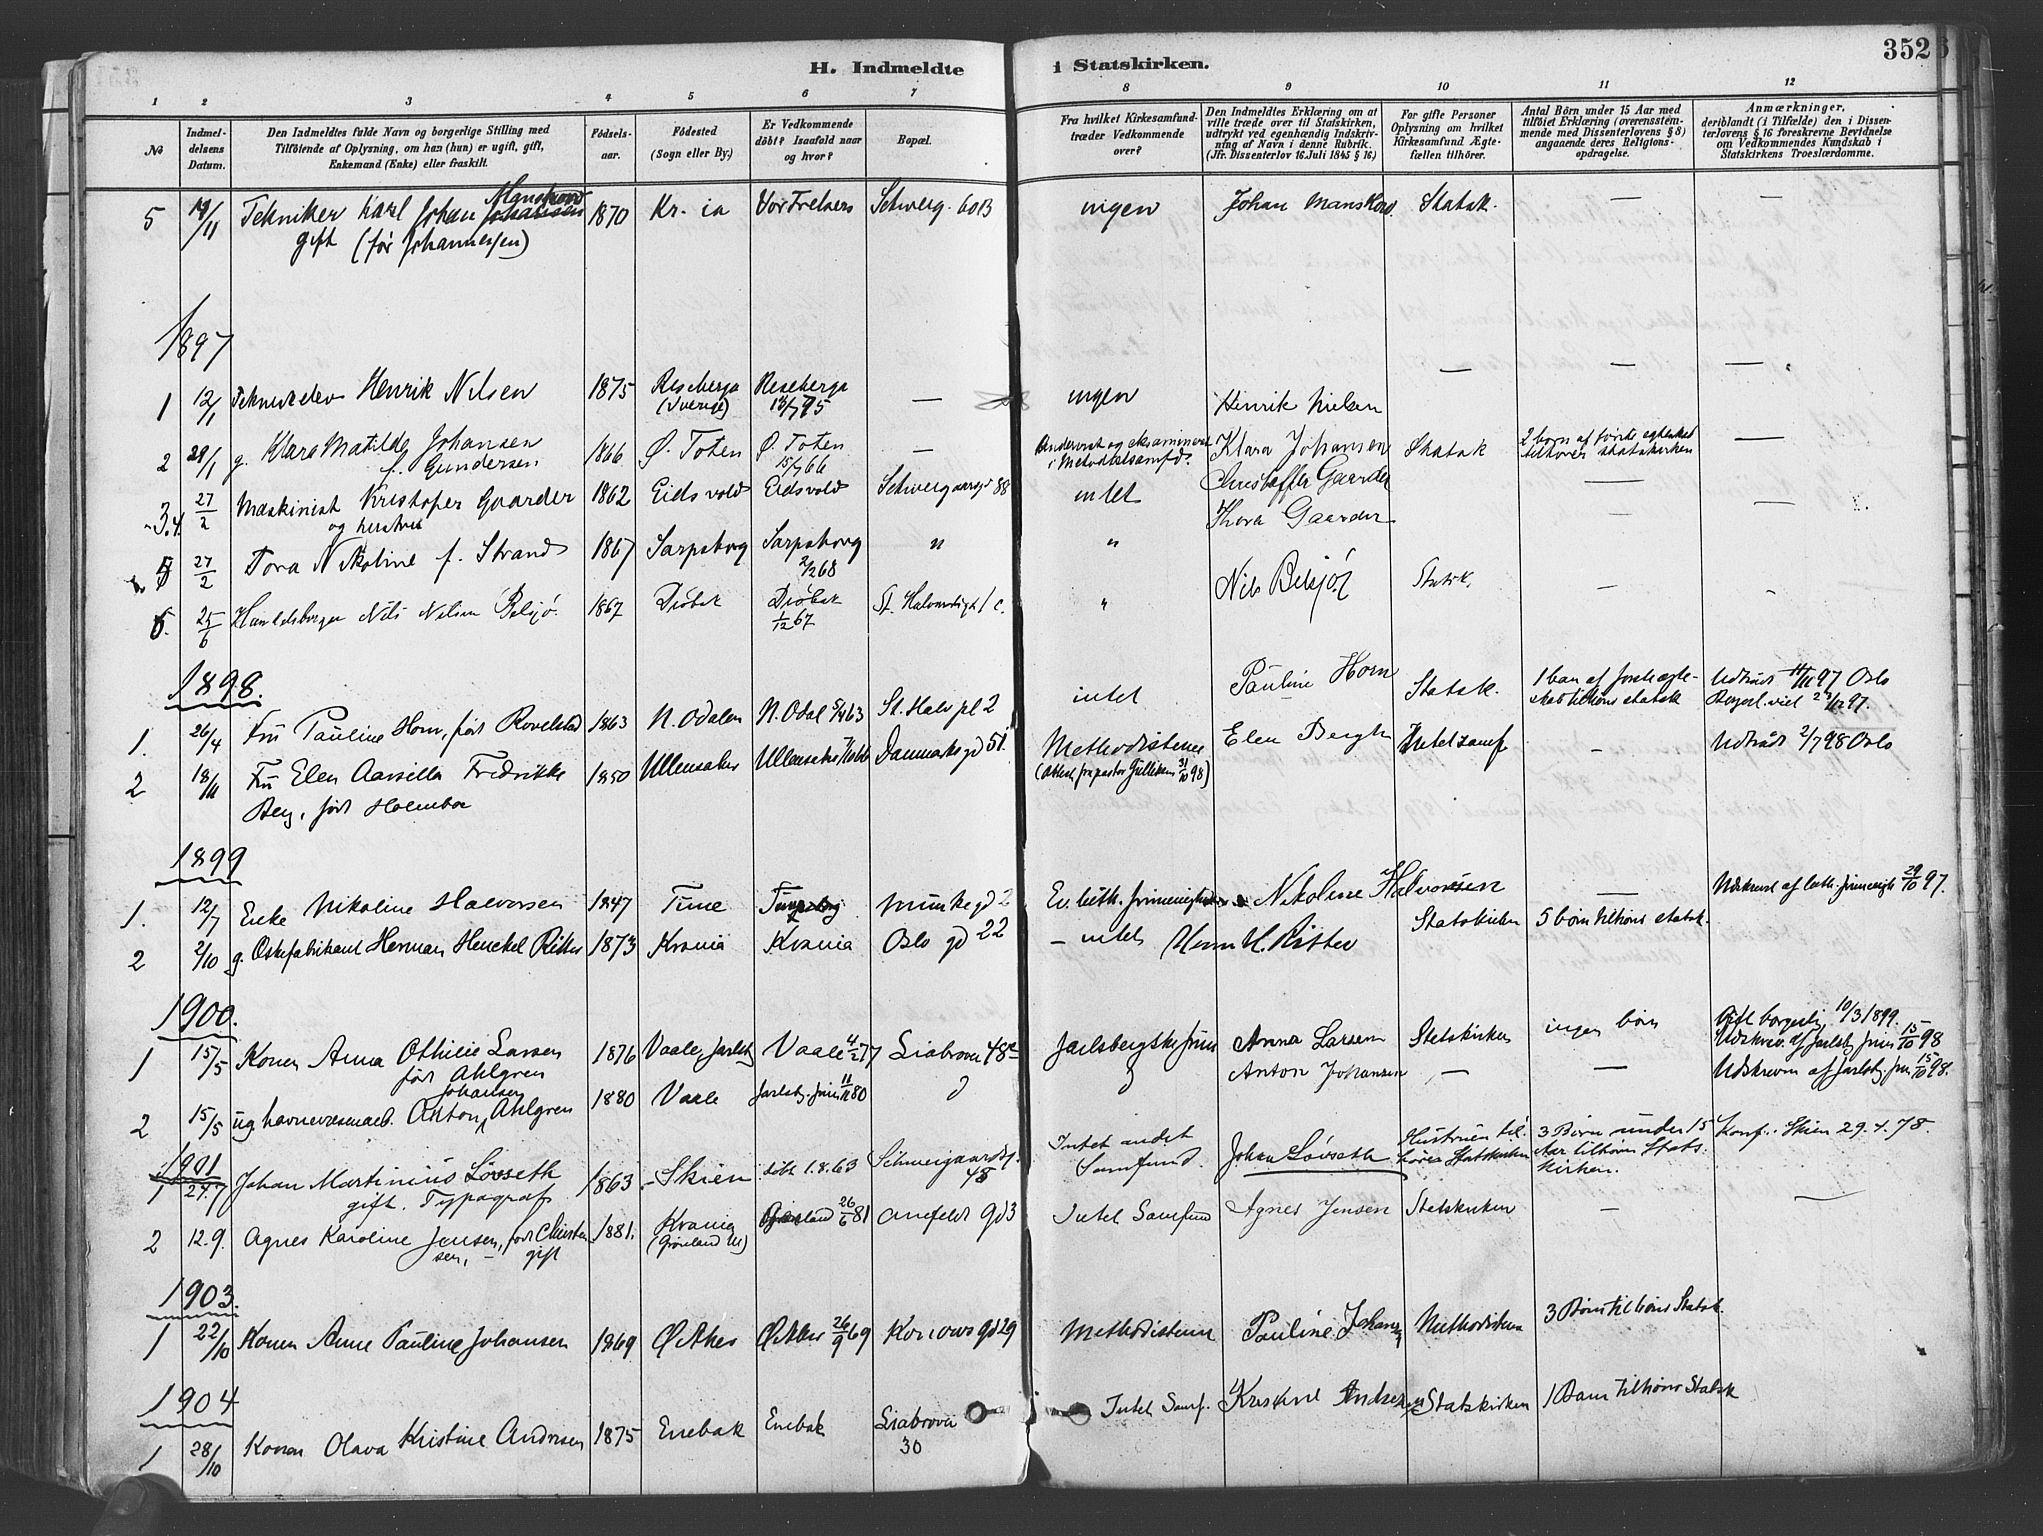 352
H. Indmeldte i Statskirken.
1 2 3 4 5 6 7 8 9 10 11 12
No
Indmeldelsens Datum.
Den Indmeldtes fulde Navn og borgerlige Stilling med Tilföiende af Oplysning, om han (hun) er ugift, gift, Enkemand (Enke) eller fraskilt.
Födselsaar.
Födested (Sogn eller By.)
Er Vedkommende döbt? Isaafald naar og hvor?
Bopæl.
Fra hvilket Kirkesamfund træder Vedkommende over?
Den Indmeldtes Erklæring om at ville træde over til Statskirken, udtrykt ved egenhændig Indskrivning af Navn i denne Rubrik. (Jfr. Dissenterlov 16. Juli 1845 § 16.)
For gifte Personer Oplysning om hvilket Kirkesamfund Ægtefællen tilhörer.
Antal Börn under 15 Aar med tilföiet Erklæring (overensstemmende med Dissenterlovens § 8) angaaende deres Religionsopdragelse.
Anmærkninger, deriblandt (i Tilfælde) den i Dissenterlovens § 16 foreskrevne Bevidnelse om Vedkommendes Kundskab i Statskirkens Troeslærdomme.
5 /11 Tekniker Karl Johan Manskow 1870 Kr.ia Vor Frelsers Schweig. 60B ingen Johan Manskow Statsk. — —
gift (før Johannessen)
1897
1 12/1 Henrik Nilsen 1875 Riseberga (Sverige) Riseberga 75 — ingen Henrik Nielsen — — —
2 29/1 g. Klara Matilde Johansen f. Gundersen 1866 Ø. Toten Ø. Toten 15/7 66 — Klara Johansen Statsk 2 børn af første egteskab tilhører statskirken —
3.4 27/2 Maskinist Kristofer Gaarder og hustru 1862 Eidsvold Eidsvold Schweigaarsgd 88 intet Christoffer Gaarder — —
27/2 Tora Nikoline f. Strand 1867 Sarpsborg Sarpsborg 2/2 68 " " Thora Gaarder —
25/6 Nils Nilsen Belsjø 1867 Drøbak Drøbak 1/12 67 St. Halvardsgt 1 c. " Nils Belsjø Statsk. — -
1898.
1. 26/4 Fru Pauline Horn, født Rovelstad 1863 N. Odalen N. Odal 63 St. Halv pl 2 intet Pauline Horn Statsk. 1 barn af første egteskab tilhører statsk Udtraadt 97 Oslo Borgerl. viet 97.
2 18/11 Fru Elen Fredrikke Berg, født Holmboe 1850 Ullensaker Ullensaker Danmarks gd 51. Methodisterne (Attest fra pastor Gulliksen 31/10 98) Elen Bergh Intet samf - Udtraadt 2/7 98 Oslo
1899
1. 12/7 Enke Nikoline Halvorsen 1847 Time Munkegd 2 Ev. luth. frimenighed Nikoline Halvorsen — Udskrevet af luth. frimenigh 97.
2 2/10 g. Oskefabrikant Herman Henckel Ritter 1873 Krania Krania Oslo gd 22 — intet Herm H. Ritter Statskirken 5 børn tilhører statsk.
1900.
1 15/5 Konen Anna Othilie Larsen født Ahlgren 1876 Vaale, Jarlsb Vaale 4/2 77 Liabroveien 48 Jarlsbergske frim Anna Larsen Statskirken ingen børn Gift borgerlig 10/3 1899. Udskrev. af Jarlsb. frim 15/10 98
2 15/5 ug. Anton Johansen Ahlgren 1880 Vaale Jarlsb. frim 11/11 80 Anton Johansen — — Udskreven af Jarlsb. frim. 15/10 98.
1901
1 24.7 Johan Martinius Løvseth gift. Typograf 1863 Skien døbt 1.8.63 Schweigaardsg. 48 Intet andet Samfund. Johan Løvseth Hustruen tilhører Statskirken 3 Børn under 15 Aar tilhører Statskirken. Konf. i Skien 29.4.78.
2 12.9. Agnes Karoline Jensen, født Christensen, gift 1881. Krania (Grønland M) Grønland 26/6 81 Anefeldt gd 3 Intet Samfund Agnes Jensen Statskirken — —
1903.
1 22/10 Konen Anne Pauline Johansen 1869 Ø. Aker Ø. Aker 26/9 69 Konows gd 29 Methodisterne Pauline Johansen Methodisterne 3 Børn tilhører Statsk.
1904
1 28/10 Konen Olava Kristine Andresen 1875 Enebak Enebak Liabrovei 30 Intet Samf. Kristine Andresen Statskirken 1 Barn tilhører Statsk